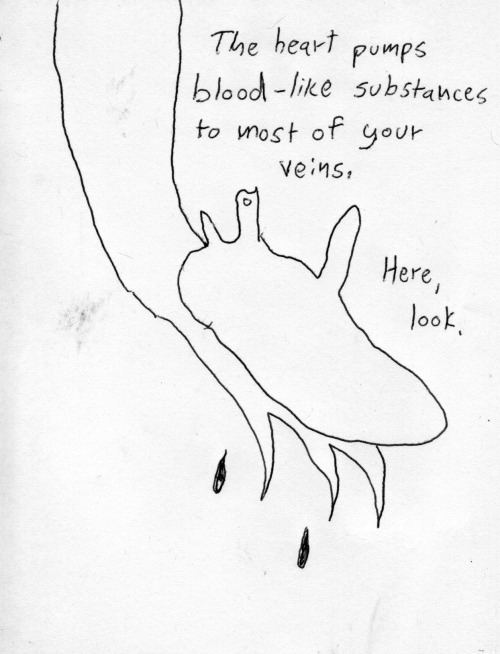 The heart pumps
blood-like substances
to most of your
veins.
Here,
look.